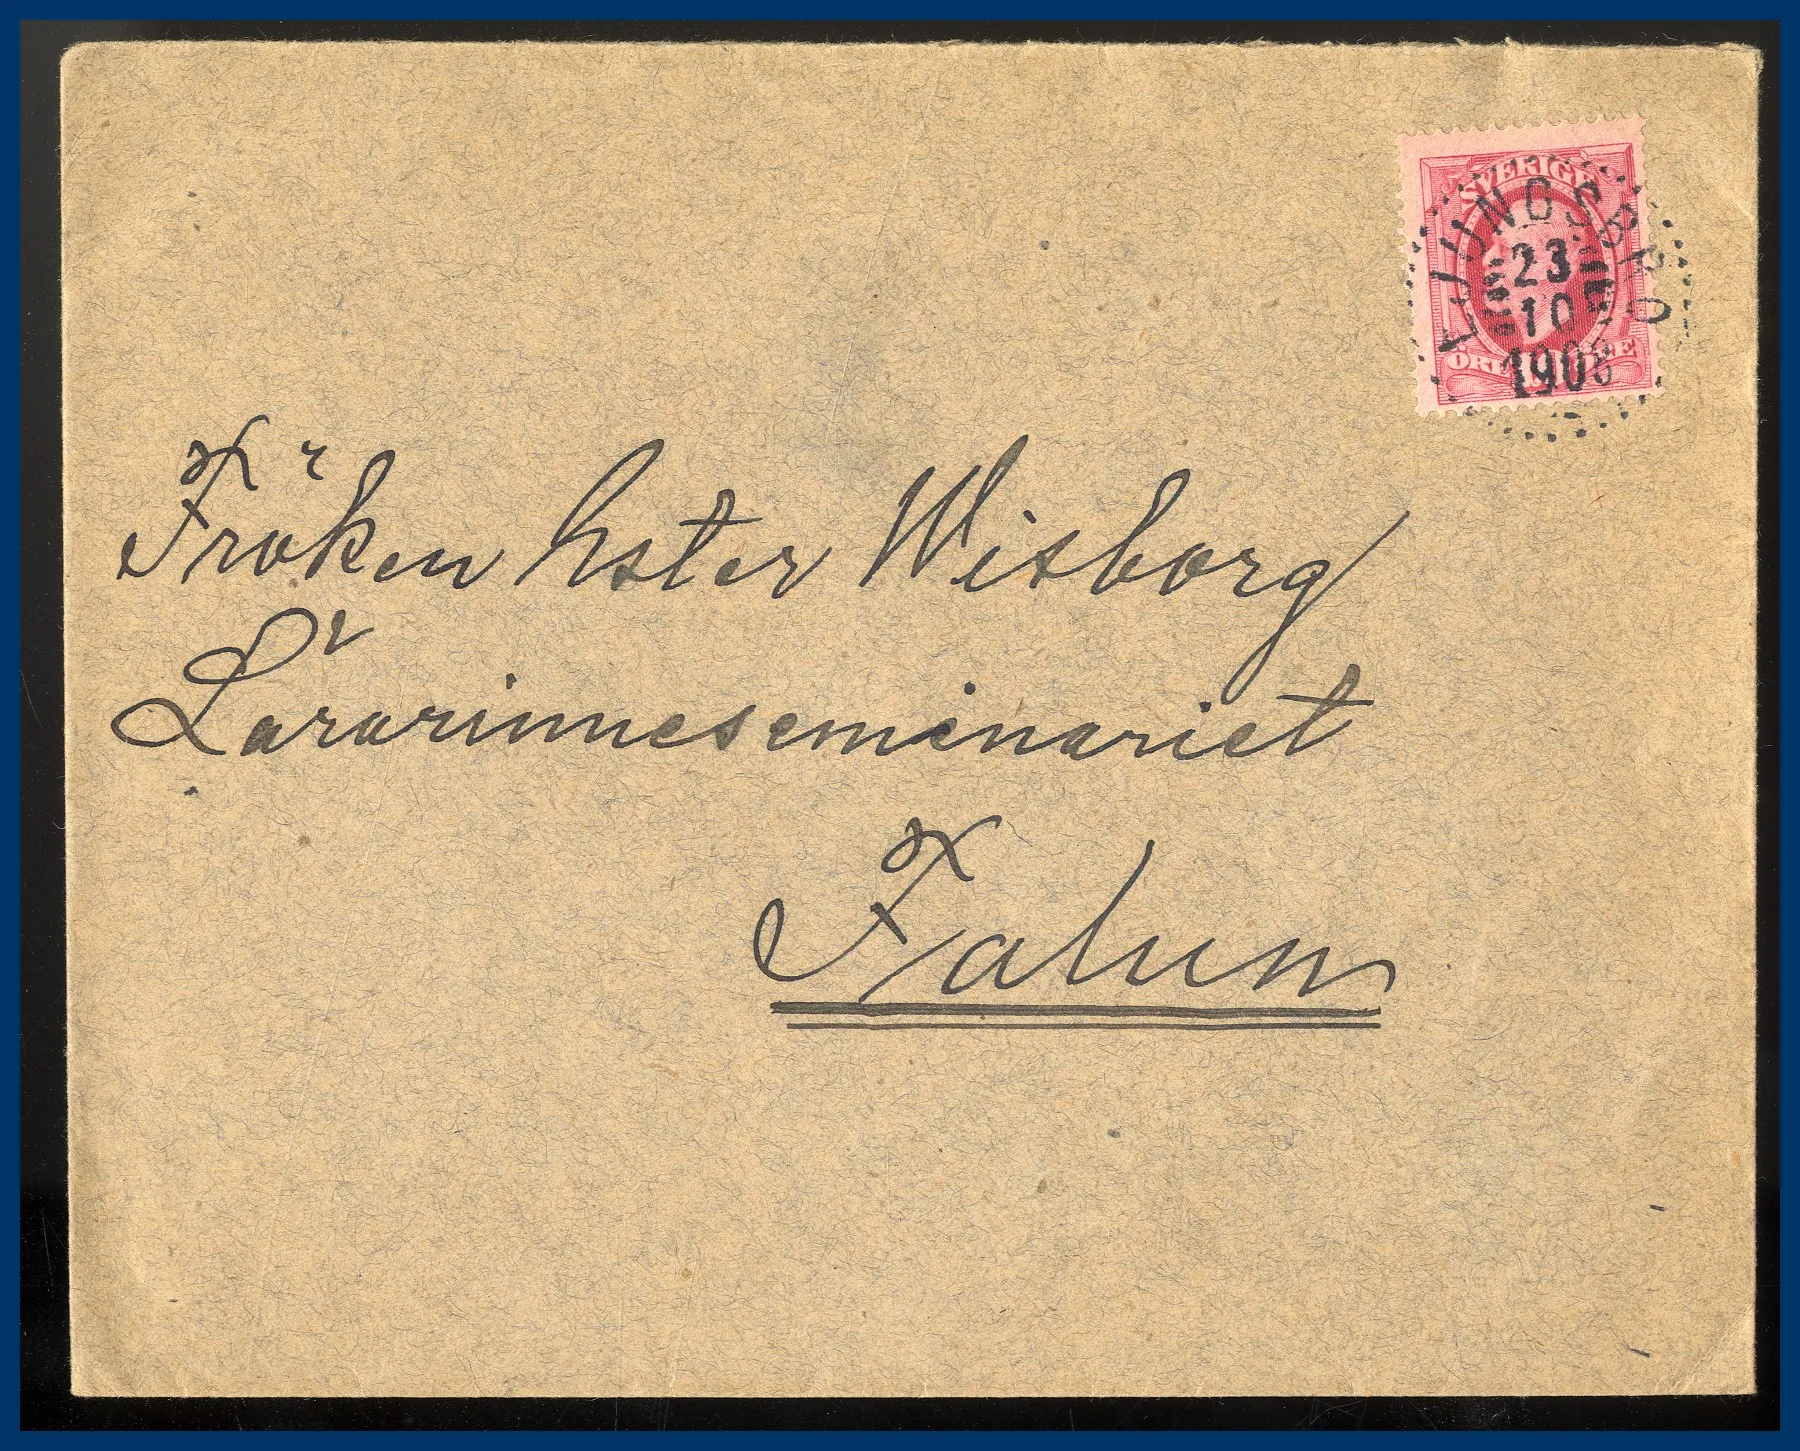 SVERIGE
LJUNGSBRO
23
10
1908
ÖRE
Fröken Ester Wisborg
Lärarinneseminariet
Falun